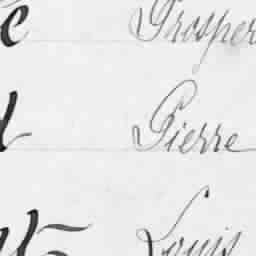 Prosper
Pierre
Louis